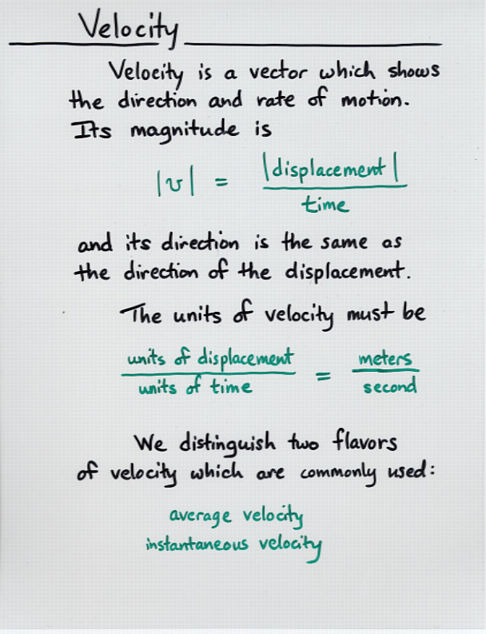 Velocity
Velocity is a vector which shows
the direction and rate of motion.
Its magnitude is
|v| = |displacement| / time
and its direction is the same as
the direction of the displacement.
The units of velocity must be
units of displacement / units of time = meters / second
We distinguish two flavors
of velocity which are commonly used:
average velocity
instantaneous velocity